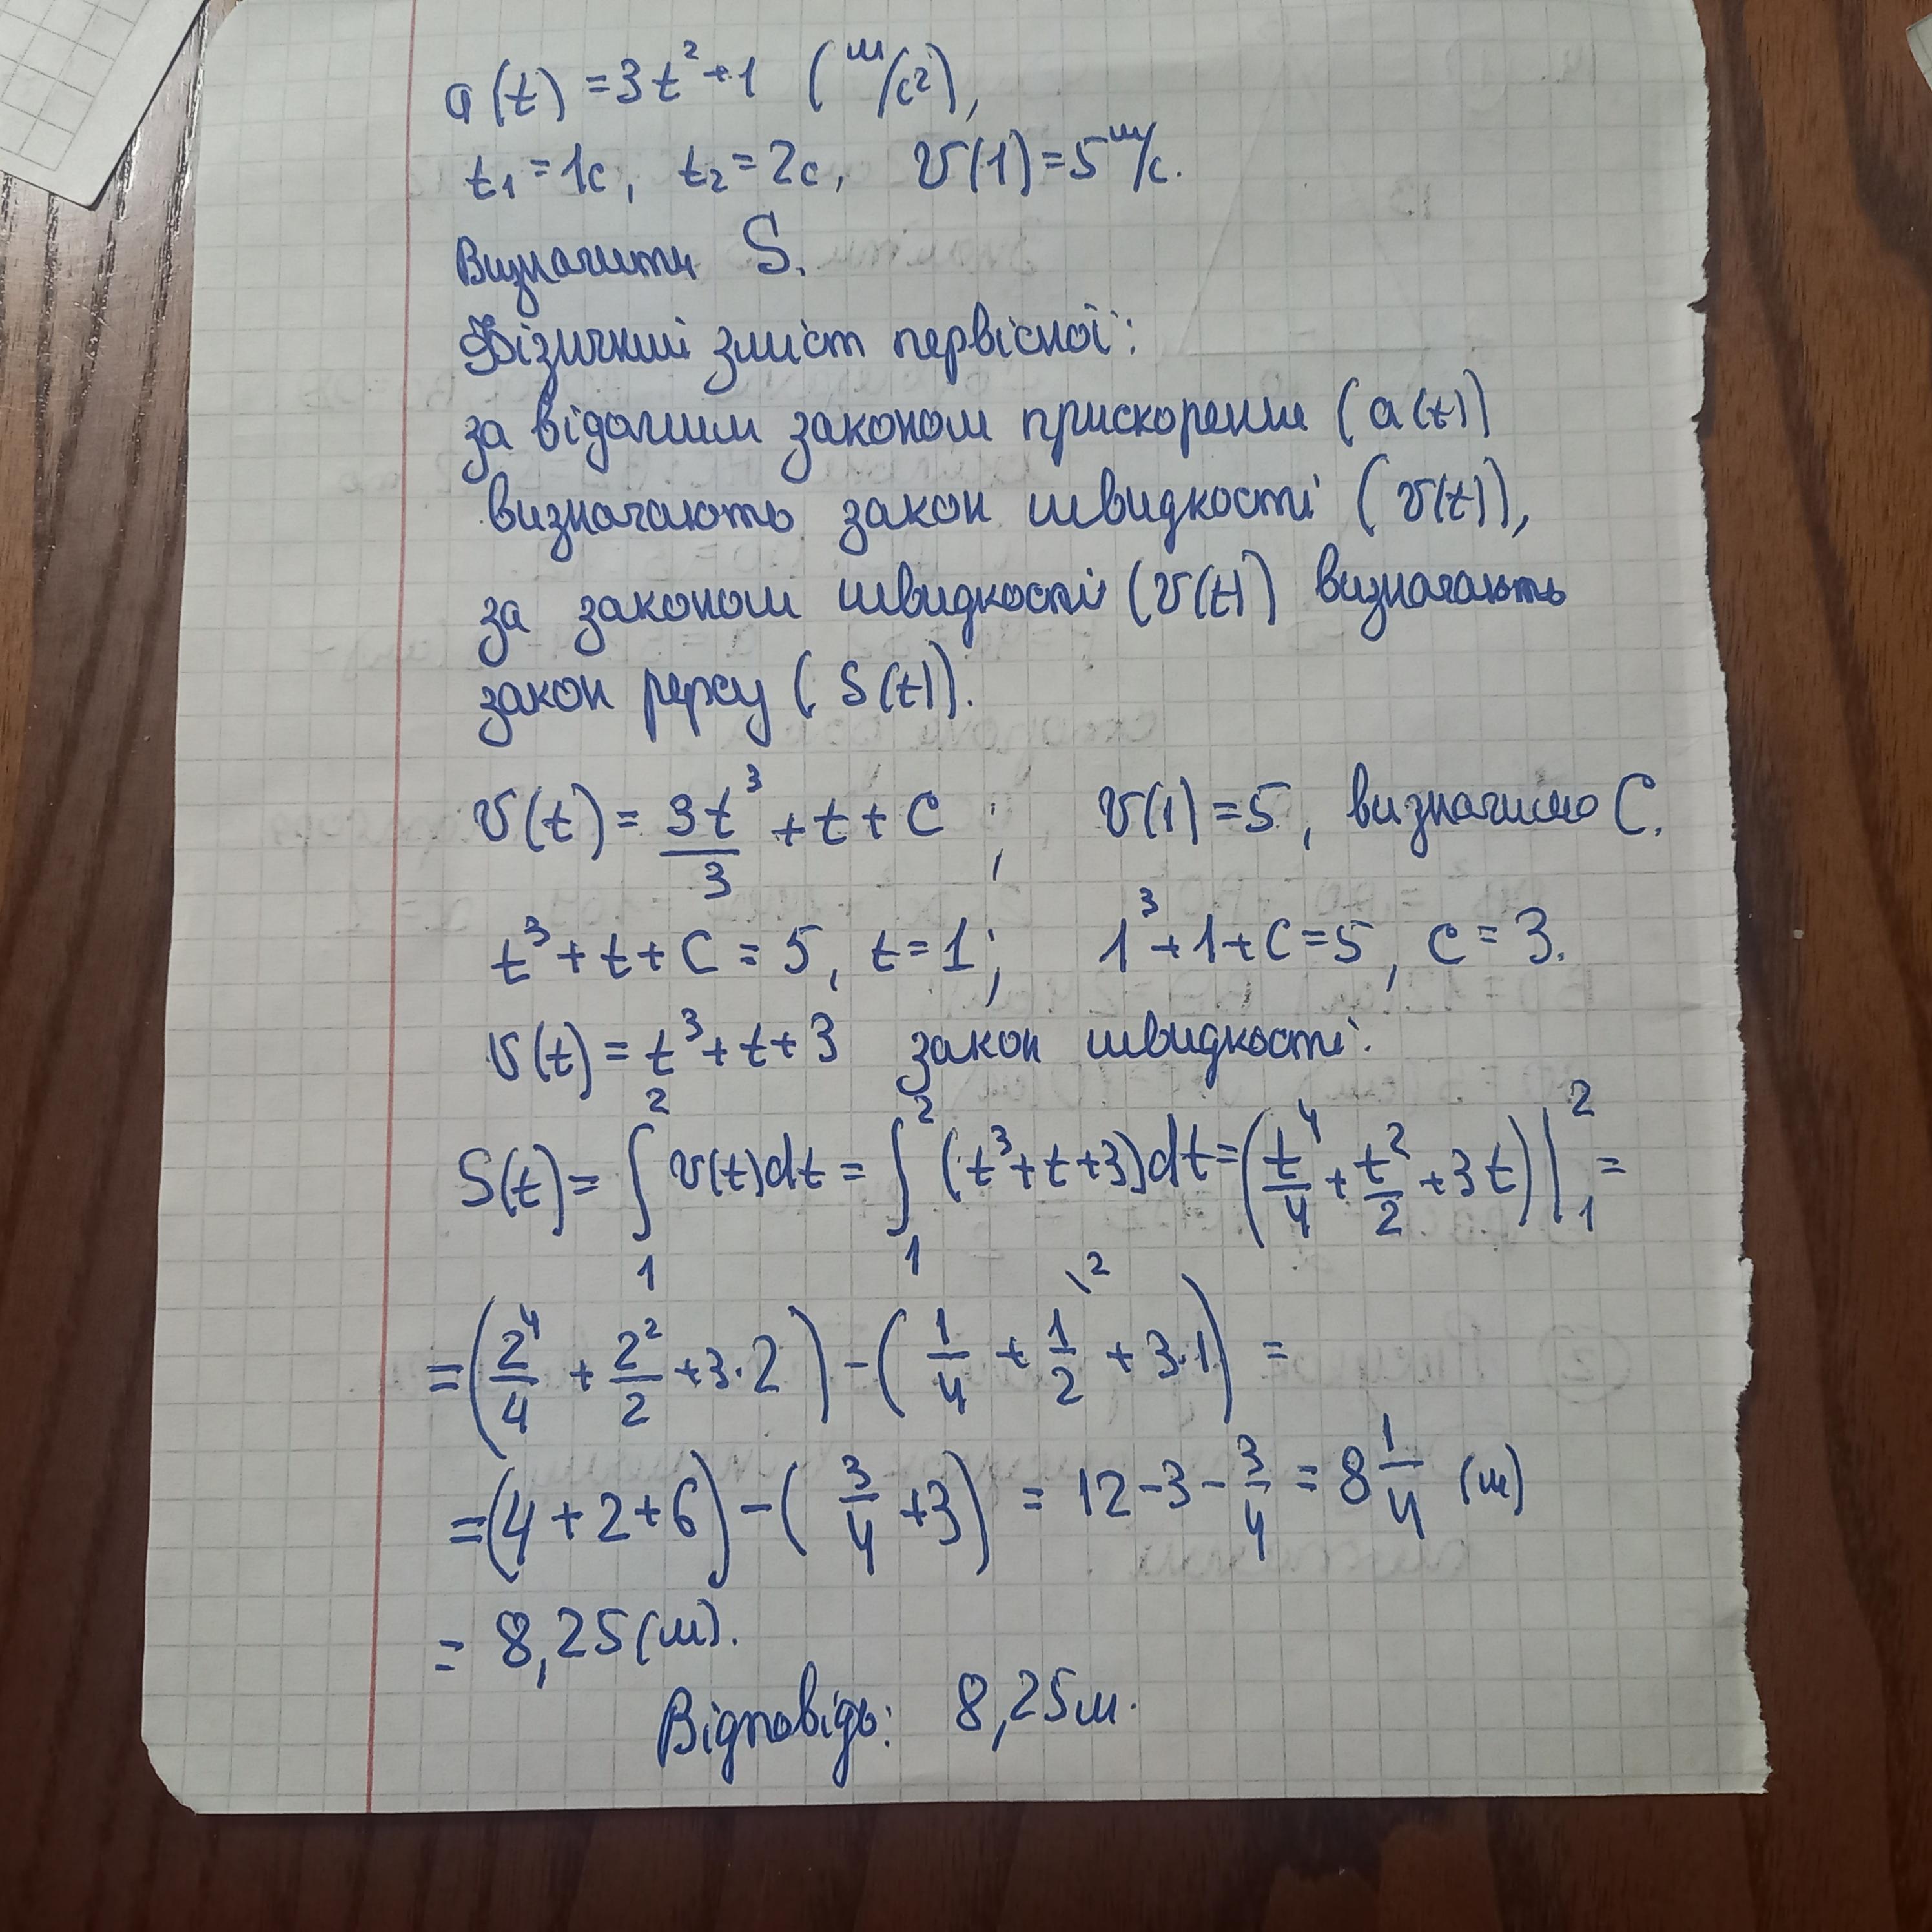 a(t) = 3t² + 1 (м/с²),
t₁ = 1с, t₂ = 2с, V(1) = 5 м/с.
Визначити S.
Фізичний зміст первісної:
за відомим законом прискорення (a(t))
визначають закон швидкості (v(t)),
за законом швидкості (v(t)) визначають
закон руху (S(t)).
v(t) = 3t³/3 + t + C ; v(1) = 5, визначимо C.
t³ + t + C = 5, t = 1; 1³ + 1 + C = 5, c = 3.
v(t) = t³ + t + 3 закон швидкості.
S(t) = ∫₁² v(t)dt = ∫₁² (t³ + t + 3)dt = (t⁴/4 + t²/2 + 3t)|₁² =
= (2⁴/4 + 2²/2 + 3·2) - (1/4 + 1\²/2 + 3·1) =
= (4 + 2 + 6) - (3/4 + 3) = 12 - 3 - 3/4 = 8 1/4 (м)
= 8,25 (м).
Відповідь: 8,25 м.